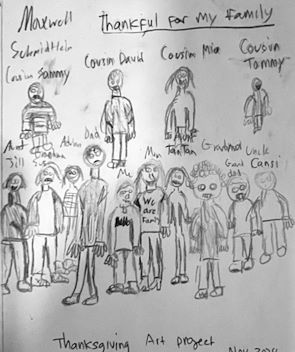 Maxwell Thankful for my family
Schmidtlein
Cousin Sammy Cousin David Cousin Mia Cousin Tommy
Aunt Jill Adrian Dad Me Mum Aunt Tan Tan Grandma Grand dad Uncle Cansi
We are Family
Thanksgiving Art project
Nov 2024